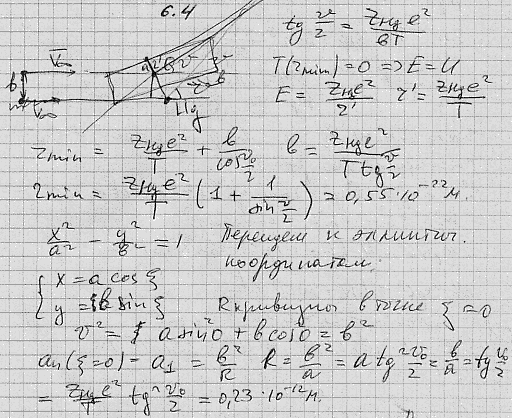 6.4
tg ν/2 = Z_яд e² / bT
T(r_min) = 0 => E = U
E = Z_яд e² / r' r' = Z_яд e² / T
V∞ b V∞
r_min = Z_яд e² / T + b / cos ν/2 b = Z_яд e² / T tg ν/2
r_min = Z_яд e² / T (1 + 1 / sin ν/2) = 0,55·10⁻²²м.
x²/a² - y²/b² = 1 Перейдем к эллиптич.
координатам.
{ x = a cos ξ
y = b sin ξ R кривизны в точке ξ = 0
v² = a sin 0 + b cos 0 = b²
a_n(ξ=0) = a₁ = b²/R R = b²/a = a tg² ν₀/2 = b/a = tg ν₀/2
= Z_яд e² / T tg² ν₀/2 = 0,23·10⁻¹²м.